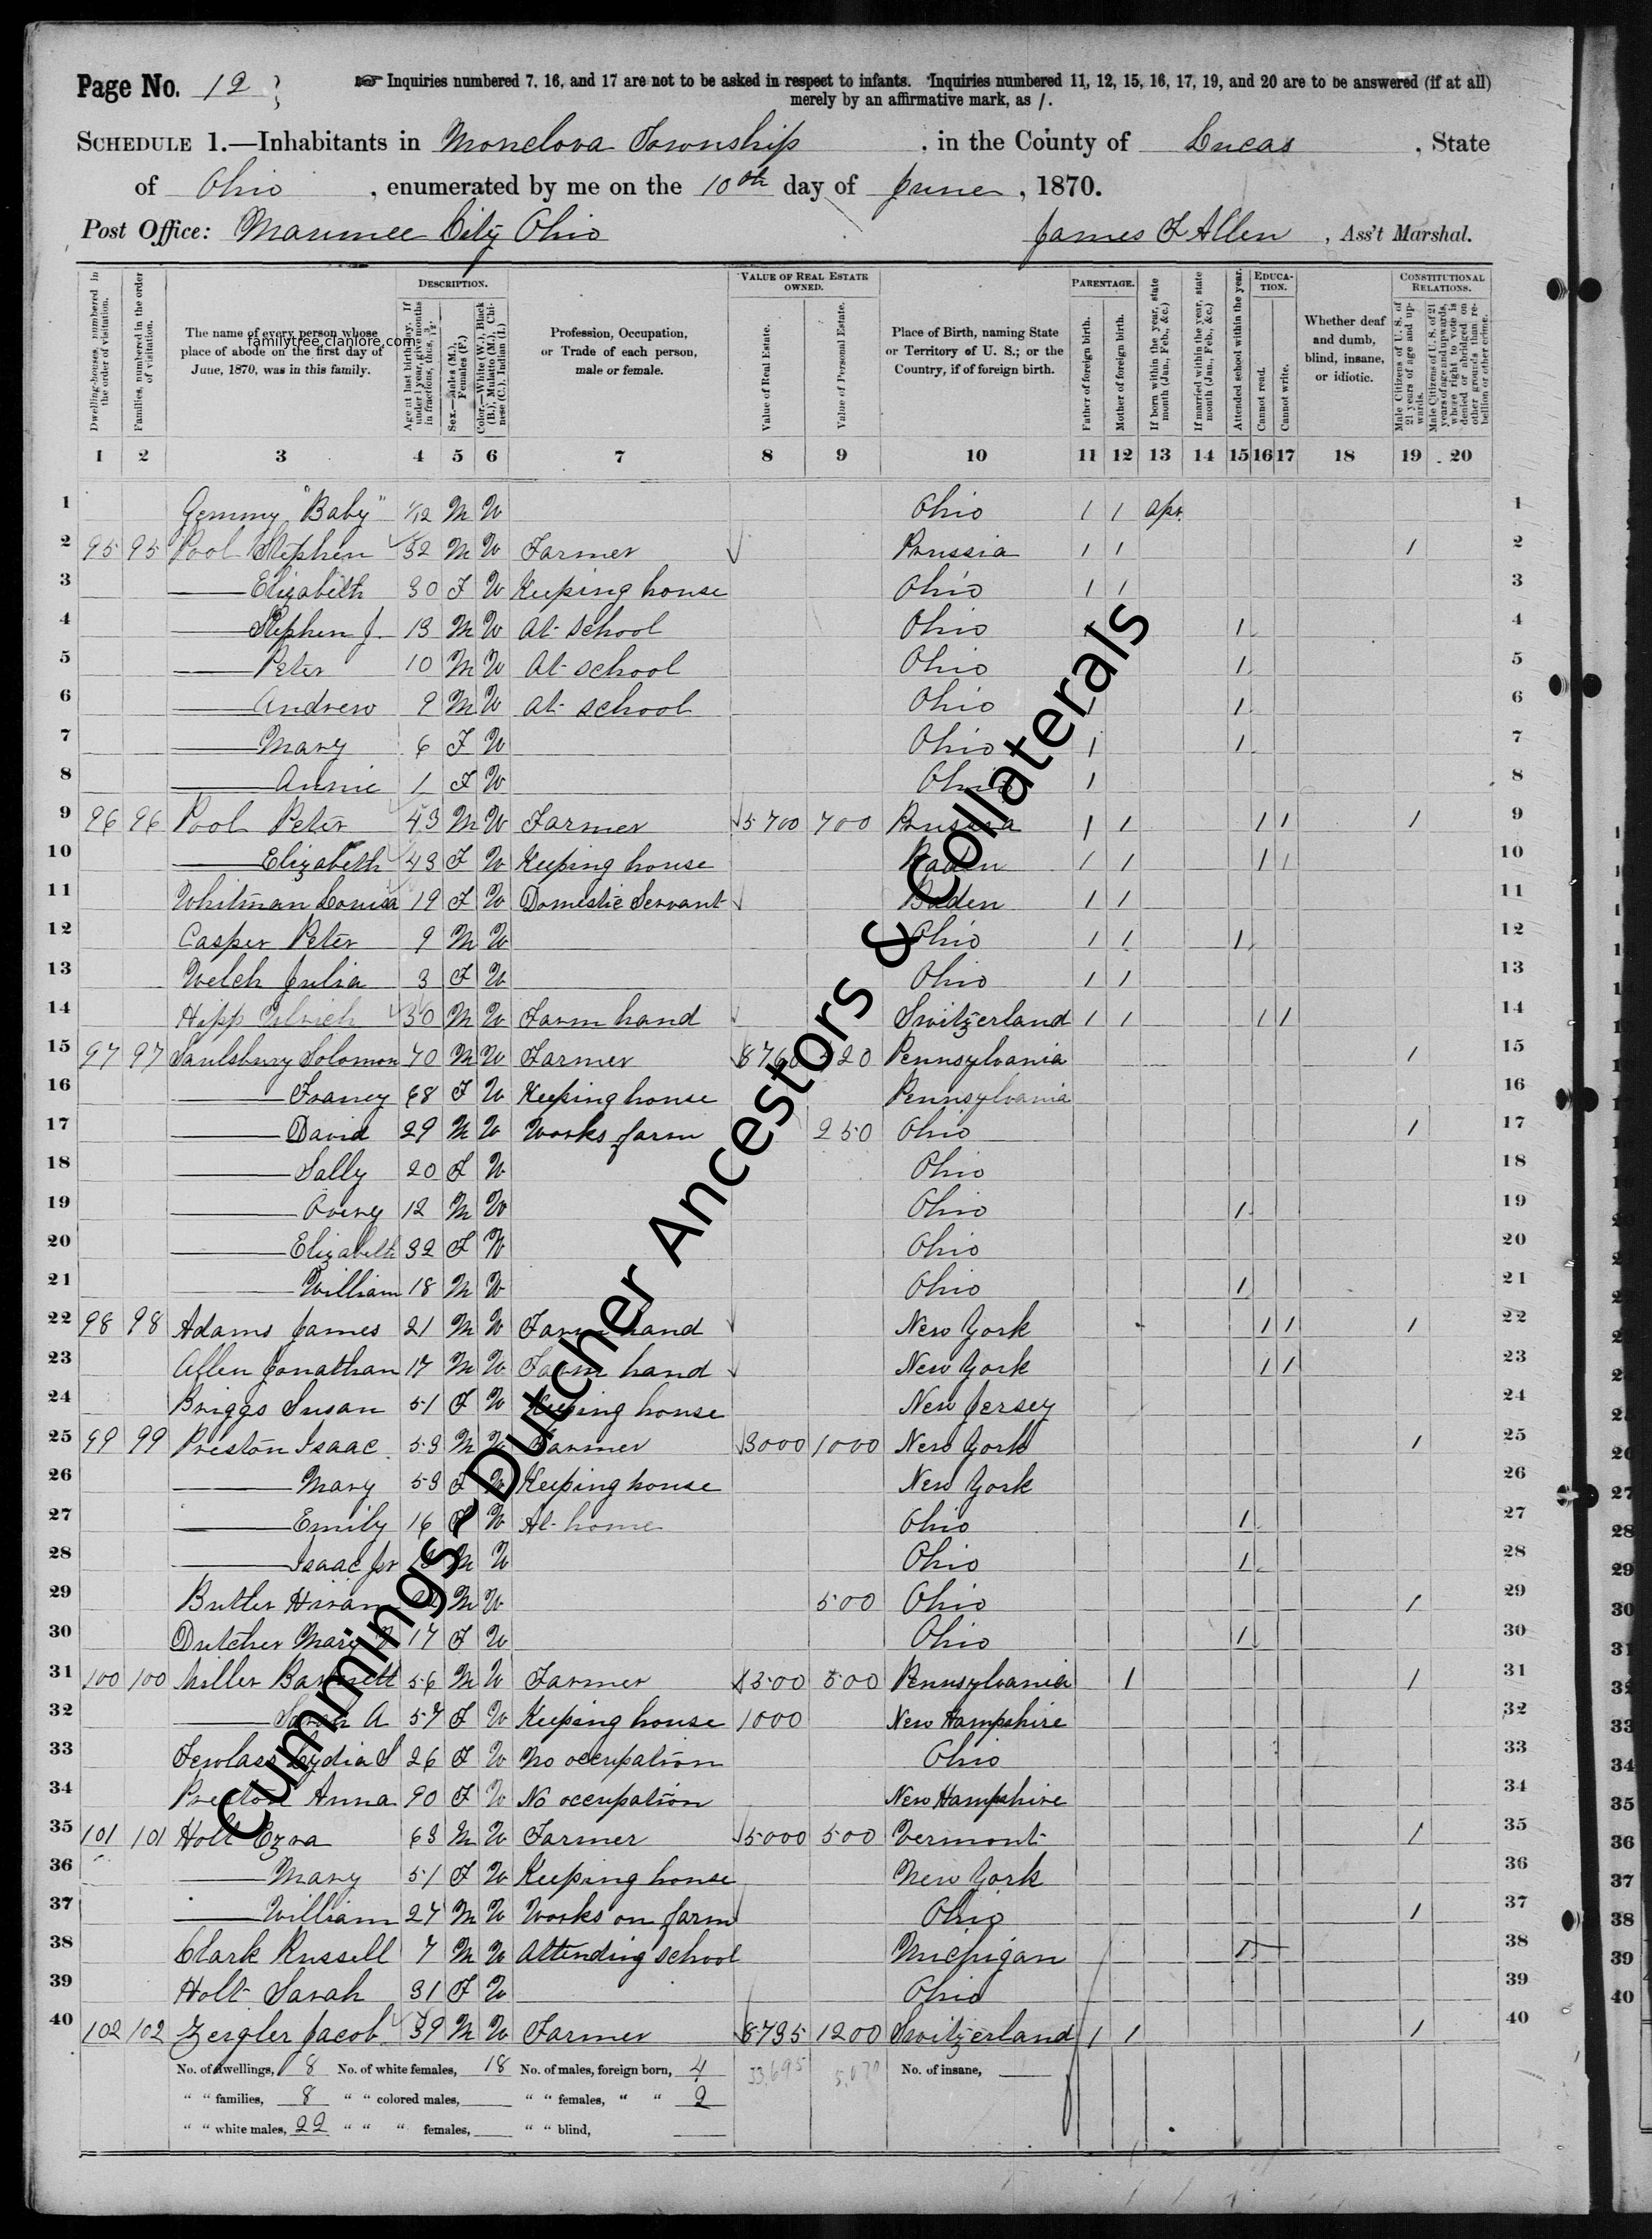 Page No. 12
☞ Inquiries numbered 7, 16, and 17 are not to be asked in respect to infants. Inquiries numbered 11, 12, 15, 16, 17, 19, and 20 are to be answered (if at all)
merely by an affirmative mark, as /.
SCHEDULE 1.—Inhabitants in Monclova Township, in the County of Lucas, State
of Ohio, enumerated by me on the 10th day of June, 1870.
Post Office: Maumee City Ohio James F Allen, Ass't Marshal.
DESCRIPTION. VALUE OF REAL ESTATE OWNED. PARENTAGE. EDUCATION. CONSTITUTIONAL RELATIONS.
Dwelling-houses, numbered in the order of visitation.
Families, numbered in the order of visitation.
The name of every person whose place of abode on the first day of June, 1870, was in this family.
familytree.clanlore.com
Age at last birthday. If under 1 year, give months in fractions, thus, 3/12.
Sex.—Males (M.), Females (F.)
Color.—White (W.), Black (B.), Mulatto (M.), Chinese (C.), Indian (I.)
Profession, Occupation, or Trade of each person, male or female.
Value of Real Estate.
Value of Personal Estate.
Place of Birth, naming State or Territory of U. S.; or the Country, if of foreign birth.
Father of foreign birth.
Mother of foreign birth.
If born within the year, state month (Jan., Feb., &c.)
If married within the year, state month (Jan., Feb., &c.)
Attended school within the year.
Cannot read.
Cannot write.
Whether deaf and dumb, blind, insane, or idiotic.
Male Citizens of U. S. of 21 years of age and upwards.
Male Citizens of U. S. of 21 years of age and upwards, whose right to vote is denied or abridged on other grounds than rebellion or other crime.
1 2 3 4 5 6 7 8 9 10 11 12 13 14 15 16 17 18 19 20
1 Gemmy "Baby" 1/12 M W Ohio / / Apr. 1
2 95 95 Pool Stephen 32 M W Farmer Prussia / / / 2
3 Elizabeth 30 F W Keeping house Ohio / / 3
4 Stephen J. 13 M W At school Ohio / 4
5 Peter 10 M W At school Ohio / 5
6 Andrew 9 M W At school Ohio / 6
7 Mary 6 F W Ohio / / 7
8 Annie 1 F W Ohio / 8
9 96 96 Pool Peter 43 M W Farmer 5700 700 Prussia / / / / / 9
10 Elizabeth 43 F W Keeping house Baden / / / / 10
11 Whitman Louisa 19 F W Domestic Servant Baden / / 11
12 Casper Peter 9 M W Ohio / / / 12
13 Welch Julia 3 F W Ohio / / 13
14 Hipp Ulrich 30 M W Farm hand Switzerland / / / / 14
15 97 97 Saulsbury Solomon 70 M W Farmer 8760 Pennsylvania / 15
16 Franey 68 F W Keeping house Pennsylvania 16
17 David 29 M W Works farm 250 Ohio / 17
18 Sally 20 F W Ohio 18
19 Avery 12 M W Ohio / 19
20 Elizabeth 32 F W Ohio 20
21 William 18 M W Ohio / 21
22 98 98 Adams James 21 M W Farm hand New York / / / 22
23 Allen Jonathan 17 M W Farm hand New York / / 23
24 Briggs Susan 51 F W Keeping house New Jersey 24
25 99 99 Preston Isaac 53 M W Farmer 3000 1000 New York / 25
26 Mary 53 F W Keeping house New York 26
27 Emily 16 F W At home Ohio / 27
28 Isaac Jr M W Ohio / 28
29 Butler Hiram M W 500 Ohio / 29
30 Dutcher Mary 17 F W Ohio / 30
31 100 100 Miller Barnett 56 M W Farmer 1500 500 Pennsylvania / / 31
32 Sarah A 57 F W Keeping house 1000 New Hampshire 32
33 Fewlass Lydia S 26 F W No occupation Ohio 33
34 Preston Anna 90 F W No occupation New Hampshire 34
35 101 101 Holt Ezra 63 M W Farmer 5000 500 Vermont / 35
36 Mary 51 F W Keeping house New York 36
37 William 27 M W Works on farm Ohio / 37
38 Clark Russell 7 M W Attending school Michigan / 38
39 Holt Sarah 31 F W Ohio 39
40 102 102 Zergler Jacob 39 M W Farmer 8735 1200 Switzerland / / / 40
No. of dwellings, 8 No. of white females, 18 No. of males, foreign born, 4 33,695 No. of insane,
" " families, 8 " " colored males, " " females, " " 2
" " white males, 22 " " " females, " " blind,
Cummings-Dutcher Ancestors & Collaterals